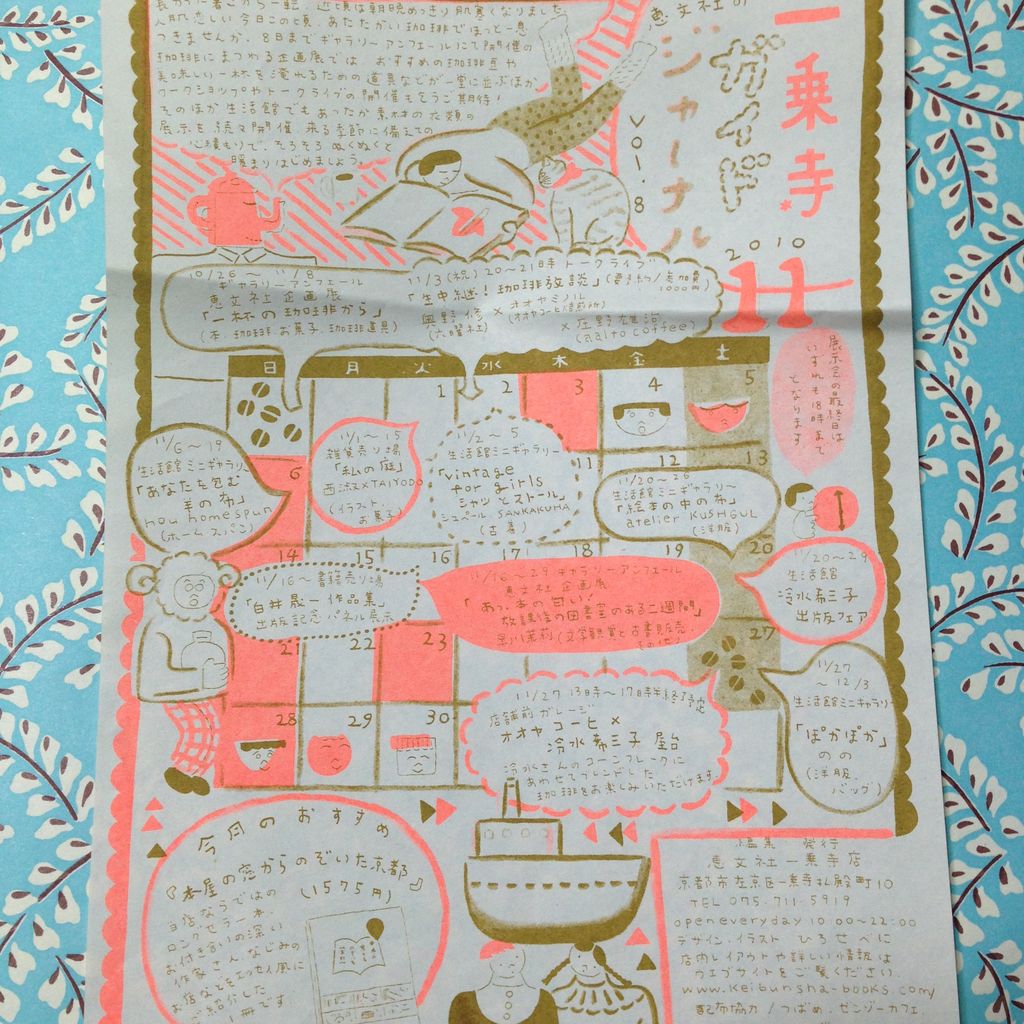 恵文社の
一乗寺
ガイド
ジャーナル
vol.8
2010
11
長かった暑さから一転、近頃は朝晩めっきり肌寒くなりました。
人肌恋しい今日この頃、あたたかい珈琲でほっと一息
つきませんか。8日までギャラリーアンフェールにて開催の
珈琲にまつわる企画展では、おすすめの珈琲豆や
美味しい一杯を淹れるための道具などが一堂に並ぶほか
ワークショップやトークライブの開催もどうご期待!
そのほか生活館でもあったか素材の衣類の
展示を続々開催。来る季節に備えての
心積もりで、そろそろぬくぬくと
暖まりはじめましょう。
10/26~11/8
ギャラリーアンフェール
恵文社企画展
「一杯の珈琲から」
(本、珈琲、お菓子、珈琲道具)
11/3(祝)20~21時トークライブ
「生中継!珈琲放談」(要予約/参加費
1000円)
奥野修×オオヤミノル
(六曜社)(オオヤコーヒ焙煎所)
×庄野雄治
(aalto coffee)
展示会の最終日は
いずれも18時まで
となります
日 月 火 水 木 金 土
1 2 3 4 5
6 11 12 13
14 15 16 17 18 19 20
21 22 23 27
28 29 30
11/6~19
生活館ミニギャラリー
「あなたを包む
羊の布」
nou homespun
(ホームスパン)
11/1~15
雑貨売り場
「私の庭」
西淑×TAIYODO
(イラスト
お菓子)
11/2~5
生活館ミニギャラリー
「vintage
for girls
シャツとストール」
シュペール SANKAKUHA
(古着)
11/20~26
生活館ミニギャラリー
「絵本の中の布」
atelier KUSHGUL
(洋服)
11/16~書籍売り場
「白井晟一作品集」
出版記念パネル展示
11/16~29 ギャラリーアンフェール
恵文社企画展
「あっ、本の匂い!
放課後の図書室のある二週間」
早川茉莉(文学観賞と古書販売、
その他)
11/20~29
生活館
冷水希三子
出版フェア
11/27
~12/3
生活館ミニギャラリー
「ぽかぽか」
のの
(洋服、
バッグ)
11/27 13時~17時半終了予定
店舗前ガレージ
オオヤコーヒ×
冷水希三子 屋台
冷水さんのコーンフレークに
あわせてブレンドした
珈琲をお楽しみいただけます
今月のおすすめ
『本屋の窓からのぞいた京都』
(1575円)
当店ならではの
ロングセラー本、
お付き合いの深い
作家さん、なじみの
お店などをエッセイ風に
ご紹介した
1冊です。
編集・発行
恵文社一乗寺店
京都市左京区一乗寺払殿町10
TEL 075-711-5919
open everyday 10:00~22:00
デザイン・イラスト ひろせべに
店内レイアウトや詳しい情報は
ウェブサイトをご覧ください
www.keibunsha-books.com/
配布協力/つばめ、ゼンゾーカフェ、